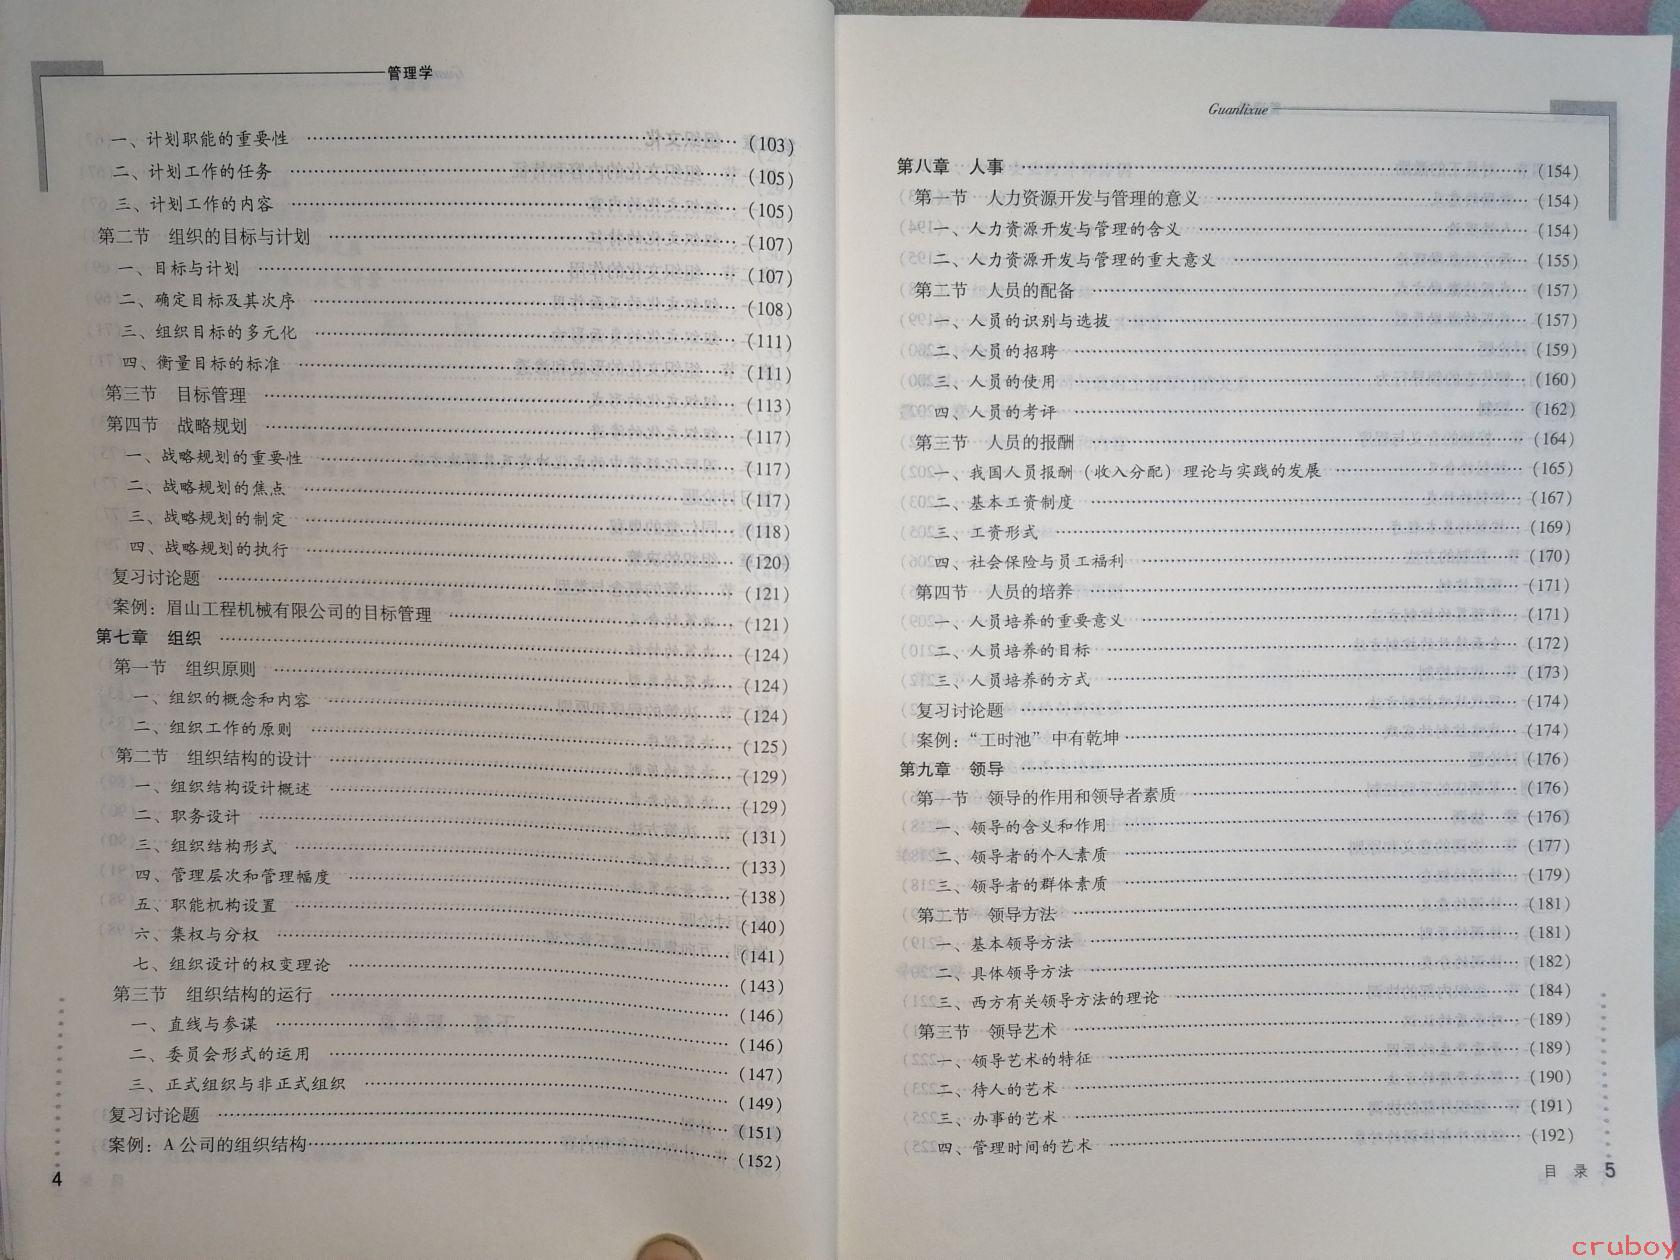 管理学
一、计划职能的重要性 ……………………………………………………(103)
二、计划工作的任务 ……………………………………………………(105)
三、计划工作的内容 ……………………………………………………(105)
第二节 组织的目标与计划 ……………………………………………………(107)
一、目标与计划 ……………………………………………………(107)
二、确定目标及其次序 ……………………………………………………(108)
三、组织目标的多元化 ……………………………………………………(111)
四、衡量目标的标准 ……………………………………………………(111)
第三节 目标管理 ……………………………………………………(113)
第四节 战略规划 ……………………………………………………(117)
一、战略规划的重要性 ……………………………………………………(117)
二、战略规划的焦点 ……………………………………………………(117)
三、战略规划的制定 ……………………………………………………(118)
四、战略规划的执行 ……………………………………………………(120)
复习讨论题 ……………………………………………………(121)
案例：眉山工程机械有限公司的目标管理 ……………………………………………………(121)
第七章 组织 ……………………………………………………(124)
第一节 组织原则 ……………………………………………………(124)
一、组织的概念和内容 ……………………………………………………(124)
二、组织工作的原则 ……………………………………………………(125)
第二节 组织结构的设计 ……………………………………………………(129)
一、组织结构设计概述 ……………………………………………………(129)
二、职务设计 ……………………………………………………(131)
三、组织结构形式 ……………………………………………………(133)
四、管理层次和管理幅度 ……………………………………………………(138)
五、职能机构设置 ……………………………………………………(140)
六、集权与分权 ……………………………………………………(141)
七、组织设计的权变理论 ……………………………………………………(143)
第三节 组织结构的运行 ……………………………………………………(146)
一、直线与参谋 ……………………………………………………(146)
二、委员会形式的运用 ……………………………………………………(147)
三、正式组织与非正式组织 ……………………………………………………(149)
复习讨论题 ……………………………………………………(151)
案例：A公司的组织结构……………………………………………………(152)
4
Guanlixue
第八章 人事 ……………………………………………………(154)
第一节 人力资源开发与管理的意义 ……………………………………………………(154)
一、人力资源开发与管理的含义 ……………………………………………………(154)
二、人力资源开发与管理的重大意义 ……………………………………………………(155)
第二节 人员的配备 ……………………………………………………(157)
一、人员的识别与选拔 ……………………………………………………(157)
二、人员的招聘 ……………………………………………………(159)
三、人员的使用 ……………………………………………………(160)
四、人员的考评 ……………………………………………………(162)
第三节 人员的报酬 ……………………………………………………(164)
一、我国人员报酬（收入分配）理论与实践的发展 ……………………………………………………(165)
二、基本工资制度 ……………………………………………………(167)
三、工资形式 ……………………………………………………(169)
四、社会保险与员工福利 ……………………………………………………(170)
第四节 人员的培养 ……………………………………………………(171)
一、人员培养的重要意义 ……………………………………………………(171)
二、人员培养的目标 ……………………………………………………(172)
三、人员培养的方式 ……………………………………………………(173)
复习讨论题 ……………………………………………………(174)
案例：“工时池”中有乾坤……………………………………………………(174)
第九章 领导 ……………………………………………………(176)
第一节 领导的作用和领导者素质 ……………………………………………………(176)
一、领导的含义和作用 ……………………………………………………(176)
二、领导者的个人素质 ……………………………………………………(177)
三、领导者的群体素质 ……………………………………………………(179)
第二节 领导方法 ……………………………………………………(181)
一、基本领导方法 ……………………………………………………(181)
二、具体领导方法 ……………………………………………………(182)
三、西方有关领导方法的理论 ……………………………………………………(184)
第三节 领导艺术 ……………………………………………………(189)
一、领导艺术的特征 ……………………………………………………(189)
二、待人的艺术 ……………………………………………………(190)
三、办事的艺术 ……………………………………………………(191)
四、管理时间的艺术 ……………………………………………………(192)
目 录 5
cruboy